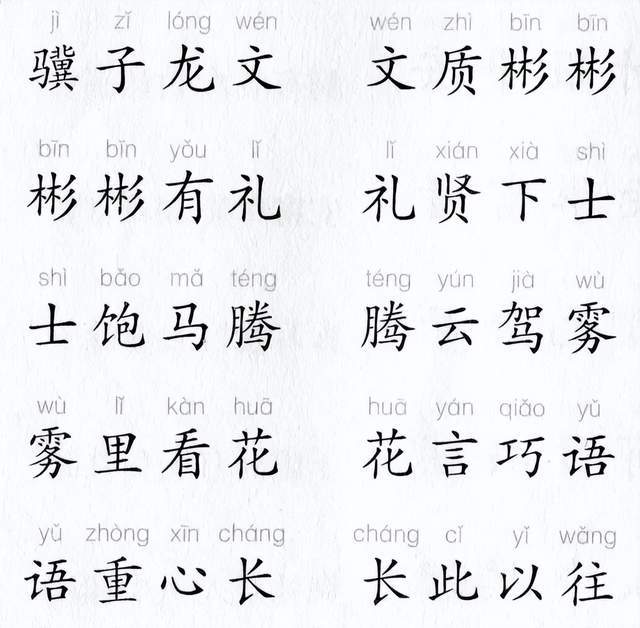 jì zǐ lóng wén wén zhì bīn bīn
骥子龙文 文质彬彬
bīn bīn yǒu lǐ lǐ xián xià shì
彬彬有礼 礼贤下士
shì bǎo mǎ téng téng yún jià wù
士饱马腾 腾云驾雾
wù lǐ kàn huā huā yán qiǎo yǔ
雾里看花 花言巧语
yǔ zhòng xīn cháng cháng cǐ yǐ wǎng
语重心长 长此以往